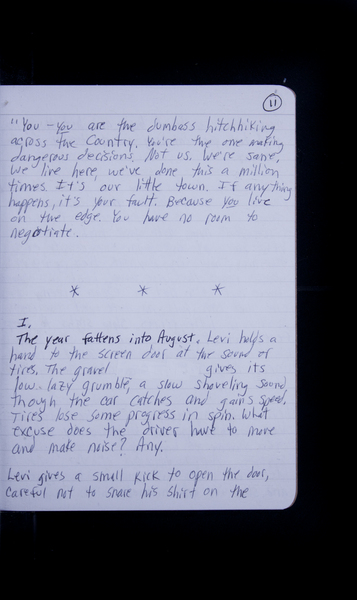 11
"You - you are the dumbass hitchhiking
across the country. You're the one making
dangerous decisions. Not us. We're sane,
we live here, we've done this a million
times. It's our little town. If anything
happens, it's your fault. Because you live
on the edge. You have no room to
negotiate.
* * *
I.
The year fattens into August. Levi holds a
hand to the screen door at the sound of
tires. The gravel gives its
low. lazy grumble, a slow shoveling sound
though the car catches and gains speed.
Tires lose some progress in spin. What
excuse does the driver have to move
and make noise? Any.
Levi gives a small kick to open the door,
careful not to snare his shirt on the